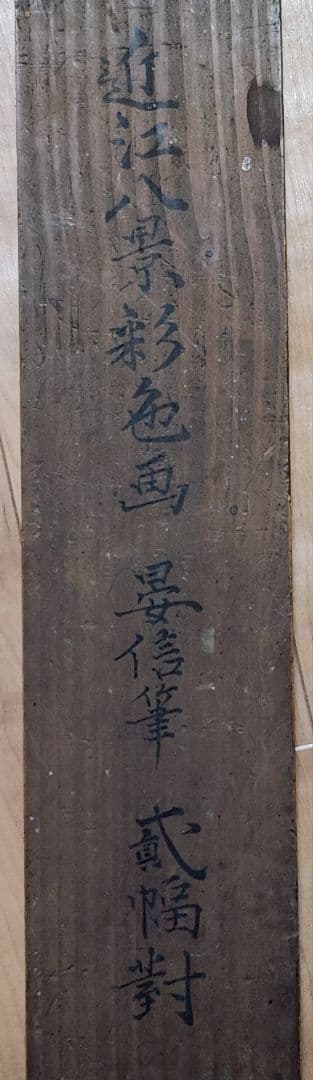 近江八景彩色画　晏信筆　貳幅對